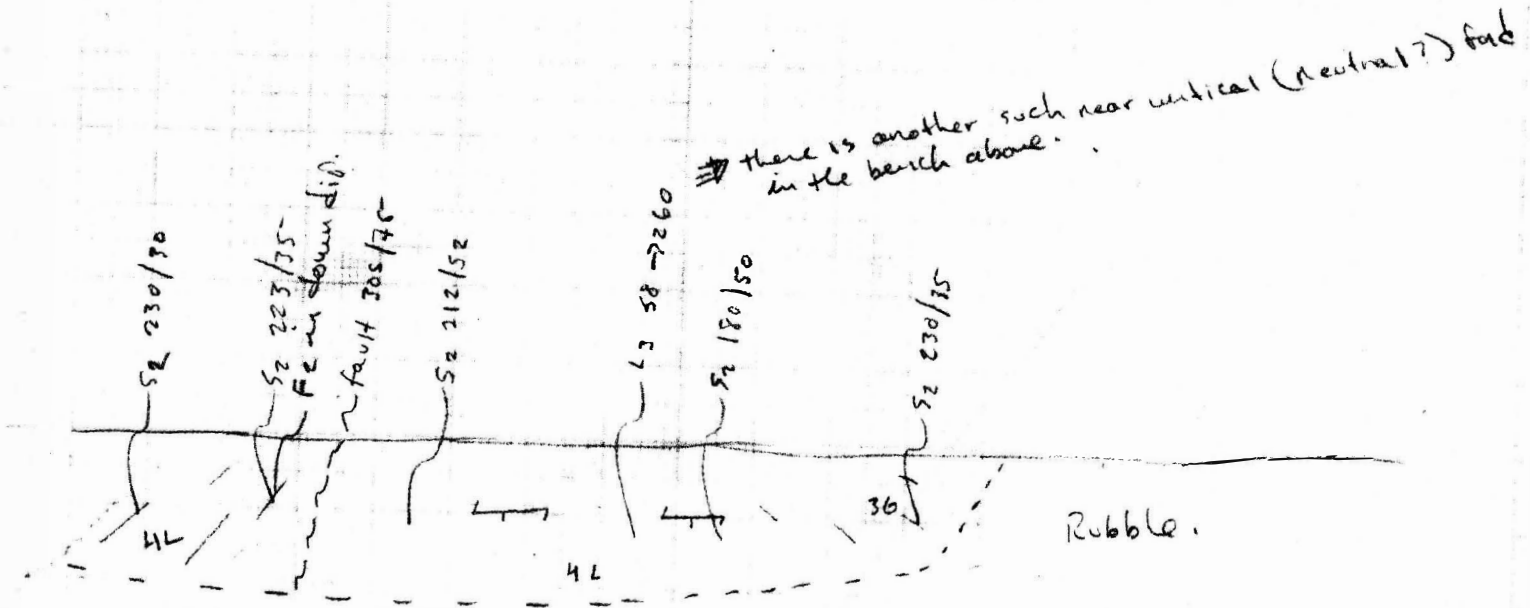 ⇒ there is another such near vertical (neutral?) fold
in the bench above.
S2 230/30
S2 223/35
F2 in down dip.
fault 305/75
S2 212/52
L3 58→260
S2 180/50
S2 230/35
4L
4L
36
Rubble.